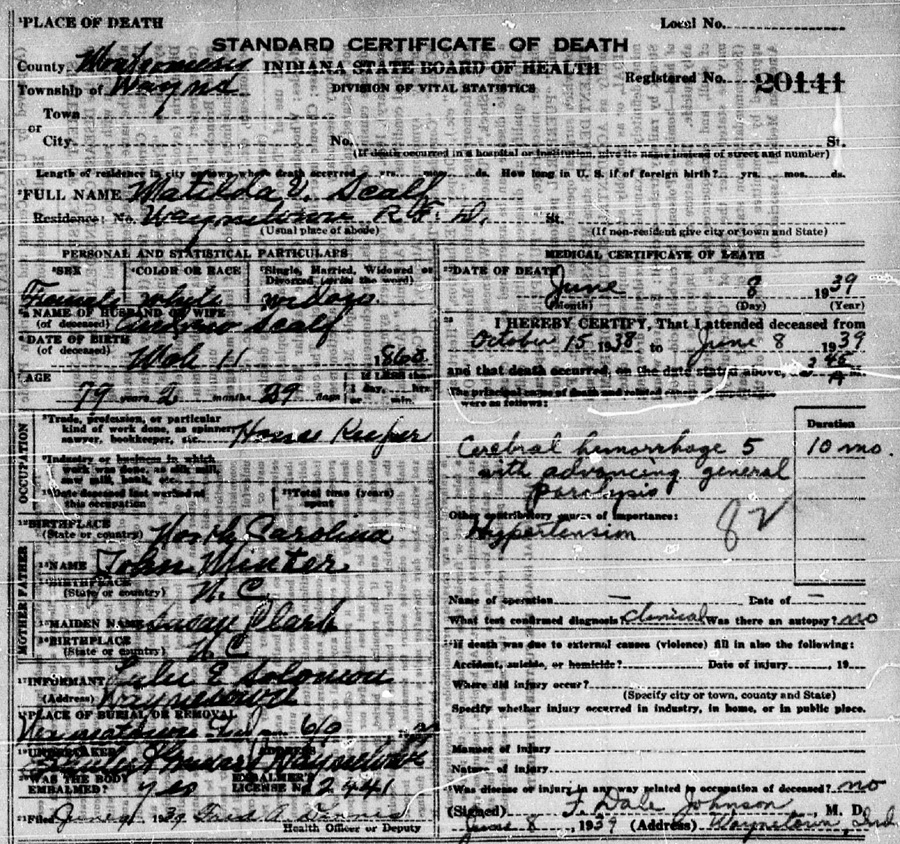 ¹PLACE OF DEATH
Local No.
STANDARD CERTIFICATE OF DEATH
County Montgomery
INDIANA STATE BOARD OF HEALTH
Registered No. 20141
Township of Wayne
DIVISION OF VITAL STATISTICS
Town
or
City No. St.
(If death occurred in a hospital or institution, give its name instead of street and number)
Length of residence in city or town where death occurred yrs. mos. ds. How long in U. S. if of foreign birth? yrs. mos. ds.
²FULL NAME Matilda V. Scalf
Residence: No. Waynetown R.F.D. St.
(Usual place of abode) (If non-resident give city or town and State)
PERSONAL AND STATISTICAL PARTICULARS
³SEX ⁴COLOR OR RACE ⁵Single, Married, Widowed or Divorced (write the word)
Female white widow
NAME OF HUSBAND OR WIFE
(of deceased) Scalf
⁶DATE OF BIRTH
(of deceased) 11 186
AGE If LESS than
79 years 2 months 29 days 1 day, hrs. or min.
OCCUPATION
⁸Trade, profession, or particular
kind of work done, as spinner,
sawyer, bookkeeper, etc. House Keeper
⁹Industry or business in which
work was done, as silk mill,
saw mill, bank, etc.
¹⁰Date deceased last worked at
this occupation
¹¹Total time (years)
spent
¹²BIRTHPLACE
(State or country) North Carolina
FATHER
¹³NAME John Minter
BIRTHPLACE
(State or country) N.C.
MOTHER
¹⁵MAIDEN NAME Clark
¹⁶BIRTHPLACE
(State or country) N C
¹⁷INFORMANT E Solomon
(Address) Waynetown
PLACE OF BURIAL OR REMOVAL
Waynetown Ind 6/10
UNDERTAKER ADDRESS
Waynetown
WAS THE BODY
EMBALMED? yes
EMBALMER'S
LICENSE No. 2441
²¹Filed June 9 1939
Health Officer or Deputy
MEDICAL CERTIFICATE OF DEATH
DATE OF DEATH
June 8 1939
(Month) (Day) (Year)
I HEREBY CERTIFY, That I attended deceased from
October 15 1938 to June 8 1939
and that death occurred, on the date stated above, 3 45 A M.
The principal cause of death and related causes of importance
were as follows:
Duration
Cerebral hemorrhage 5 10 mo.
with advancing general
paralysis
Other contributory causes of importance:
Hypertension 82
Name of operation — Date of —
What test confirmed diagnosis? Clinical Was there an autopsy? no
If death was due to external causes (violence) fill in also the following:
Accident, suicide, or homicide? Date of injury , 19
Where did injury occur?
(Specify city or town, county and State)
Specify whether injury occurred in industry, in home, or in public place.
Manner of injury
Nature of injury
Was disease or injury in any way related to occupation of deceased? no
(Signed) F. Dale Johnson, M. D.
June 8, 1939 (Address) Waynetown, Ind.